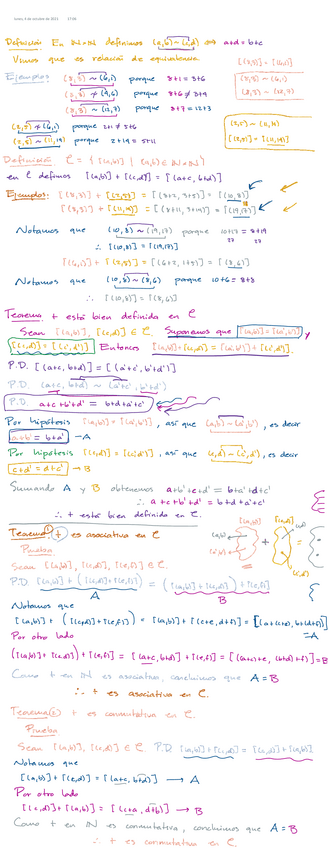 Definición En ℕ×ℕ definimos (a,b) ~ (c,d) ⟺ a+d = b+c
Vimos que es relación de equivalencia.
Ejemplos: (8,3) ~ (6,1) porque 8+1 = 3+6
(8,3) ≁ (9,6) porque 8+6 ≠ 3+9
(8,3) ~ (12,7) porque 8+7 = 12+3
(2,5) ≁ (6,1) porque 2+1 ≠ 5+6
(2,5) ~ (11,14) porque 2+14 = 5+11
(2,5) ~ (11,14)
[(2,5)] = [(11,14)]
Definición ℤ = { [(a,b)] | (a,b) ∈ ℕ×ℕ }
en ℤ definimos [(a,b)] + [(c,d)] = [(a+c, b+d)]
Ejemplos: [(8,3)] + [(2,5)] = [(8+2, 3+5)] = [(10,8)]
[(8,3)] + [(11,14)] = [(8+11, 3+14)] = [(19,17)]
Notamos que (10,8) ~ (19,17) porque 10+17 = 8+19
27 27
∴ [(10,8)] = [(19,17)]
[(6,1)] + [(2,5)] = [(6+2, 1+5)] = [(8,6)]
Notamos que (10,8) ~ (8,6) porque 10+6 = 8+8
∴ [(10,8)] = [(8,6)]
Teorema + está bien definida en ℤ
Sean [(a,b)], [(c,d)] ∈ ℤ. Supongamos que [(a,b)] = [(a',b')] y
[(c,d)] = [(c',d')] Entonces [(a,b)] + [(c,d)] = [(a',b')] + [(c',d')].
P.D. [(a+c, b+d)] = [(a'+c', b'+d')]
P.D. (a+c, b+d) ~ (a'+c', b'+d')
P.D. a+c+b'+d' = b+d+a'+c'
Por hipótesis [(a,b)] = [(a',b')], así que (a,b) ~ (a',b'), es decir
a+b' = b+a' → A
Por hipótesis [(c,d)] = [(c',d')], así que (c,d) ~ (c',d'), es decir
c+d' = d+c' → B
Sumando A y B obtenemos a+b'+c+d' = b+a'+d+c'
∴ a+c+b'+d' = b+d+a'+c'
∴ + está bien definido en ℤ.
Teorema ① + es asociativa en ℤ
Prueba
Sean [(a,b)], [(c,d)], [(e,f)] ∈ ℤ.
P.D. [(a,b)] + ([(c,d)] + [(e,f)]) = ([(a,b)] + [(c,d)]) + [(e,f)]
A B
Notamos que
[(a,b)] + ([(c,d)] + [(e,f)]) = [(a,b)] + [(c+e, d+f)] = [(a+(c+e), b+(d+f))] = A
Por otro lado
([(a,b)] + [(c,d)]) + [(e,f)] = [(a+c, b+d)] + [(e,f)] = [((a+c)+e, (b+d)+f)] = B
Como + en ℕ es asociativa, concluimos que A = B
∴ + es asociativa en ℤ.
Teorema ② + es conmutativa en ℤ.
Prueba
Sean [(a,b)], [(c,d)] ∈ ℤ. P.D. [(a,b)] + [(c,d)] = [(c,d)] + [(a,b)]
Notamos que
[(a,b)] + [(c,d)] = [(a+c, b+d)] → A
Por otro lado
[(c,d)] + [(a,b)] = [(c+a, d+b)] → B
Como + en ℕ es conmutativa, concluimos que A = B
∴ + es conmutativa en ℤ.